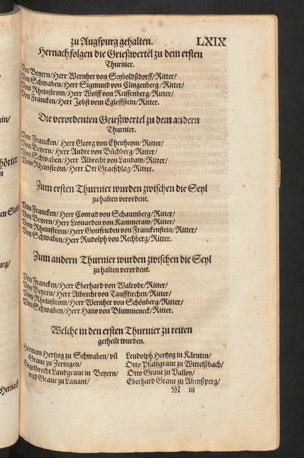 zu Augspurg gehalten. LXIX
Hernach folgen die Grießwertel zu dem ersten
Thurnier.
Von Beyern/Herr Wernher von Seyboltßdorff/Ritter/
Von Schwaben/Herr Sigmund von Clingenberg/Ritter/
Vom Rheinstrom/Herr Wolff von Reiffenberg/Ritter/
Von Francken/Herr Jobst vom Egloffstein/Ritter.
Die verordenten Grießwertel zu dem andern
Thurnier.
Von Francken/Herr Georg von Ehenheym/Ritter/
Von Beyern/Herr Andre von Büchberg/Ritter/
Von Schwaben/Herr Albrecht von Landaw/Ritter/
Vom Rheinstrom/Herr Ott Graeschlag/Ritter.
Zum ersten Thurnier wurden zwischen die Seyl
zu halten verordent.
Von Francken/Herr Conrad von Schaumberg/Ritter/
Von Beyern/Herr Leonard von Kammeraw/Ritter/
Vom Rheinstrom/Herr Gottfrieden von Franckenstein/Ritter/
Von Schwaben/Herr Rudolph von Rechberg/Ritter.
Zum andern Thurnier wurden zwischen die Seyl
zu halten verordent.
Von Francken/Herr Eberhard von Walrode/Ritter/
Von Beyern/Herr Albrecht von Tauffkirchen/Ritter/
Vom Rheinstrom/Herr Wernher von Schönburg/Ritter/
Von Schwaben/Herr Hans von Blummeneck/Ritter.
Welche in den ersten Thurnier zu reiten
getheilt wurden.
Herman Hertzog zu Schwaben/vñ
Graue zu Zeringen/
Engelbrecht Landgraue in Beyern
vnd Graue zu
Leudolph Hertzog in Kärnten/
Otto Pfaltzgraue zu Wittelßbach/
Otto Graue zu Valley/
Eberhard Graue zu Abensperg/
M iij